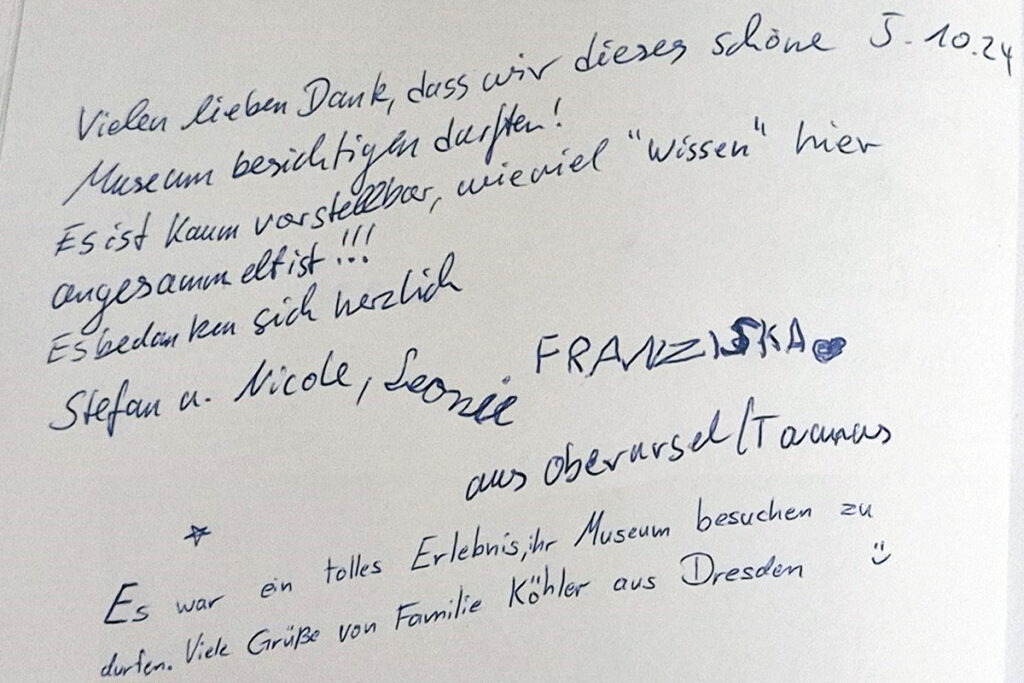 Vielen lieben Dank, dass wir dieses schöne 5.10.24
Museum besichtigen durften!
Es ist kaum vorstellbar, wieviel "Wissen" hier
angesammelt ist!!!
Es bedanken sich herzlich
Stefan u. Nicole, Leonie FRANZISKA
aus Oberursel/Taunus
Es war ein tolles Erlebnis, ihr Museum besuchen zu
durfen. Viele Grüße von Familie Köhler aus Dresden